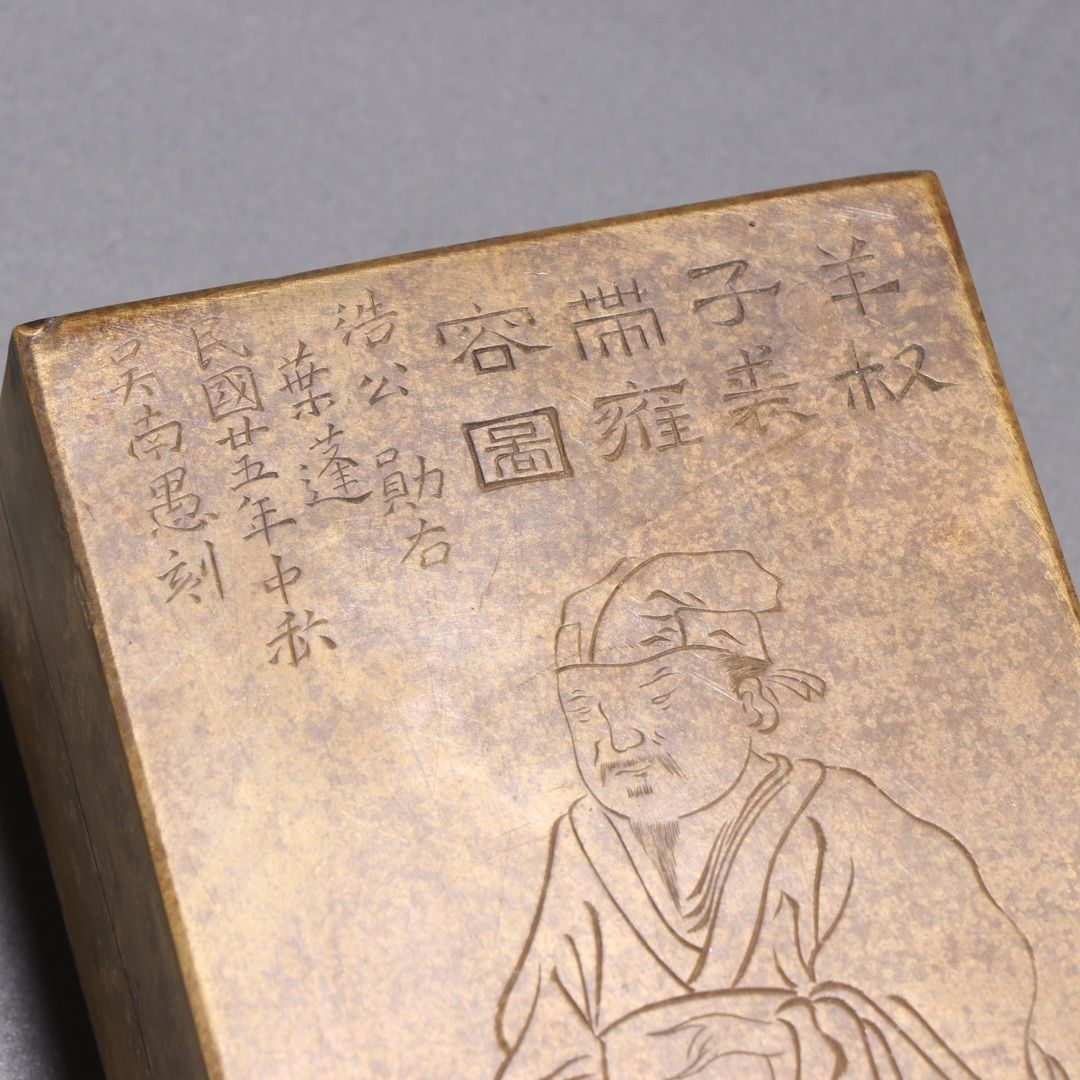 羊叔
子裘
帶雍
容圖
浩公勛右
葉蓬
民國廿五年中秋
吳南愚刻